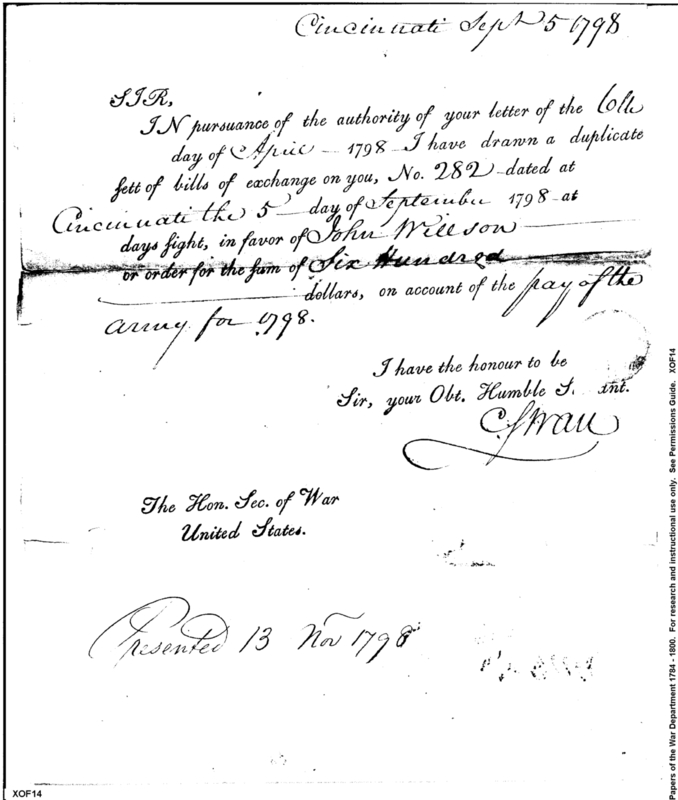 Cincinnati Sept 5 1798
SIR,
IN pursuance of the authority of your letter of the
day of April 1798 I have drawn a duplicate
sett of bills of exchange on you, No. 282 dated at
Cincinnati the 5 day of September 1798 at
days sight, in favor of John Willson
or order for the sum of Six Hundred
dollars, on account of the pay of the
army for 1798.
I have the honour to be
Sir, your Obt. Humble
C Swan
The Hon. Sec. of War
United States.
Presented 13 Nov 1798
XOF14
Papers of the War Department 1784 - 1800. For research and instructional use only. See Permissions Guide. XOF14